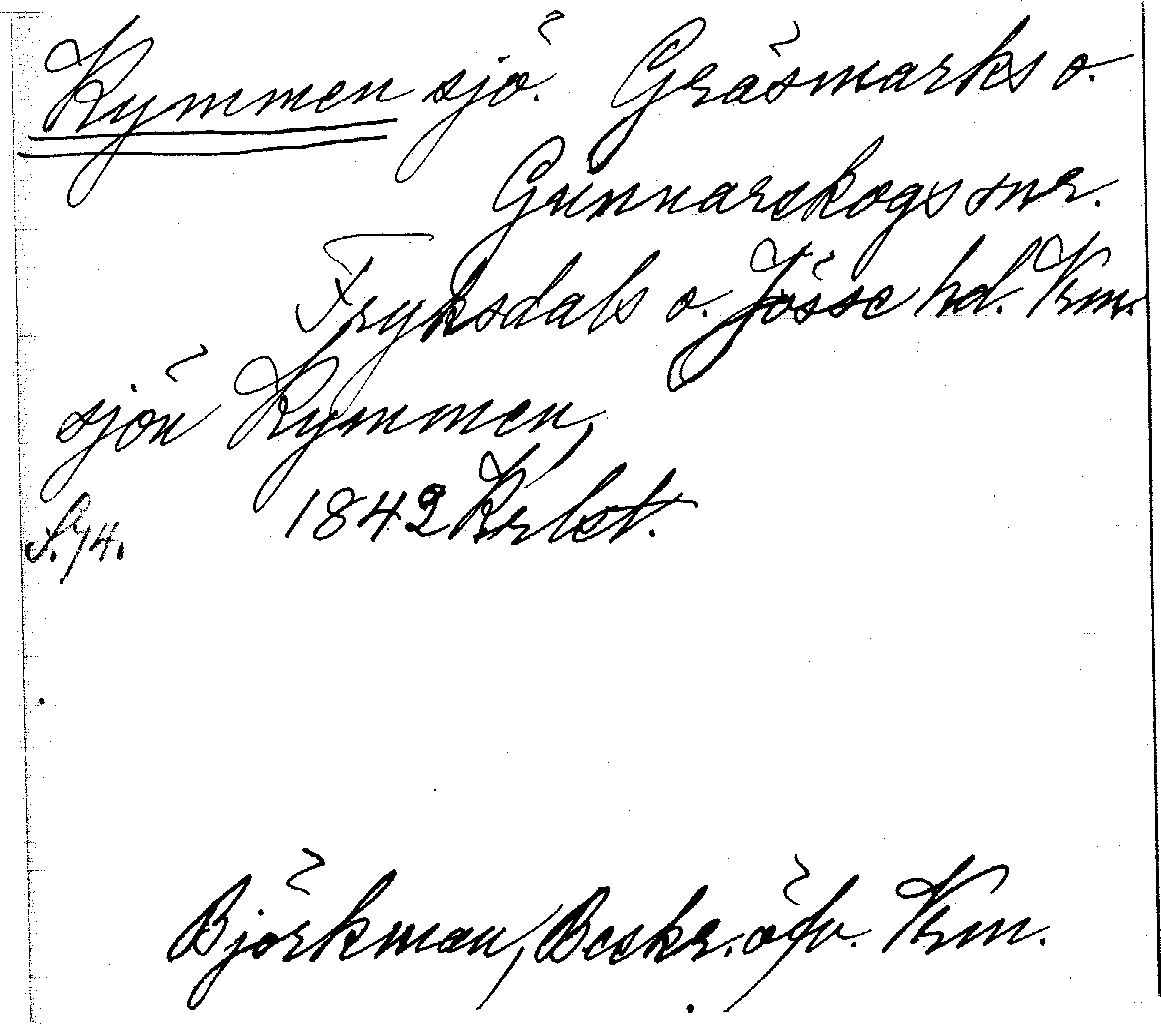 Kymmen sjö. Gräsmarks o.
Gunnarskogs snr.
Fryksdals o. Jösse hd. Vrm.
sjön Kymmen,
1842 Krlst.
S. 74.
Björkman, Beskr. öfv. Vrm.